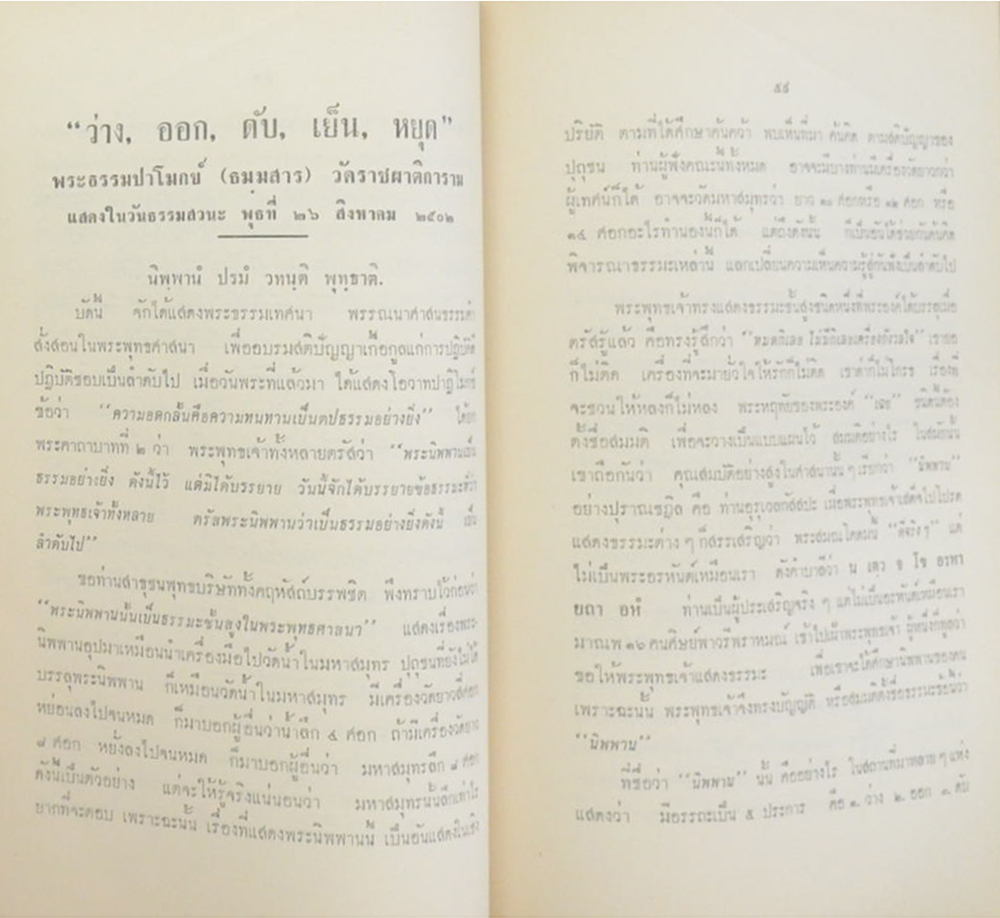 “ว่าง, ออก, ดับ, เย็น, หยุด”
พระธรรมปาโมกข์ (ธมฺมสาร) วัดราชผาติการาม
แสดงในวันธรรมสวนะ พุธที่ ๒๖ สิงหาคม ๒๕๐๒
นิพฺพานํ ปรมํ วทนฺติ พุทฺธาติ.
บัดนี้ จักได้แสดงพระธรรมเทศนา พรรณนาศาสนธรรมคำ
สั่งสอนในพระพุทธศาสนา เพื่ออบรมสติปัญญาเกื้อกูลแก่การปฏิบัติดี
ปฏิบัติชอบเป็นลำดับไป เมื่อวันพระที่แล้วมา ได้แสดงโอวาทปาฏิโมกข์
ข้อว่า “ความอดกลั้นคือความทนทานเป็นตปธรรมอย่างยิ่ง” ได้ยก
พระคาถาบาทที่ ๒ ว่า พระพุทธเจ้าทั้งหลายตรัสว่า “พระนิพพานเป็น
ธรรมอย่างยิ่ง ดังนี้ไว้ แต่มิได้บรรยาย วันนี้จักได้บรรยายข้อธรรมะที่ว่า
พระพุทธเจ้าทั้งหลาย ตรัสพระนิพพานว่าเป็นธรรมอย่างยิ่งดังนี้ เป็น
ลำดับไป”
ขอท่านสาธุชนพุทธบริษัททั้งคฤหัสถ์บรรพชิต พึงทราบไว้ก่อนว่า
“พระนิพพานนั้นเป็นธรรมะชั้นสูงในพระพุทธศาสนา” แสดงเรื่องพระ-
นิพพานอุปมาเหมือนนำเครื่องมือไปวัดน้ำในมหาสมุทร ปุถุชนที่ยังไม่ได้
บรรลุพระนิพพาน ก็เหมือนวัดน้ำในมหาสมุทร มีเครื่องวัดยาวสี่ศอก
หย่อนลงไปจนหมด ก็มาบอกผู้อื่นว่าน้ำลึก ๔ ศอก ถ้ามีเครื่องวัดยาว
๘ ศอก หยั่งลงไปจนหมด ก็มาบอกผู้อื่นว่า มหาสมุทรลึก ๘ ศอก
ดังนี้เป็นตัวอย่าง แต่จะให้รู้จริงแน่นอนว่า มหาสมุทรนั้นลึกเท่าไร
ยากที่จะตอบ เพราะฉะนั้น เรื่องที่แสดงพระนิพพานนี้ เป็นอันแสดงในเชิง
ปริยัติ ตามที่ได้ศึกษาค้นคว้า พบเห็นที่มา คันคิด ตามสติปัญญาของ
ปุถุชน ท่านผู้ฟังคณะนี้ทั้งหมด อาจจะมีบางท่านมีเครื่องวัดยาวกว่า
ผู้เทศน์ก็ได้ อาจจะวัดมหาสมุทรว่า ยาว ๑๐ ศอกหรือ ๑๒ ศอก หรือ
๑๔ ศอกอะไรทำนองนี้ก็ได้ แต่ถึงดังนั้น ก็เป็นอันได้ช่วยกันค้นคิด
พิจารณาธรรมะเหล่านี้ แลกเปลี่ยนความเห็นความรู้สู่กันฟังเป็นลำดับไป
พระพุทธเจ้าทรงแสดงธรรมะชั้นสูงชนิดหนึ่งที่พระองค์ได้บรรลุเมื่อ
ตรัสรู้แล้ว คือทรงรู้สึกว่า “หมดกิเลส ไม่มีกิเลสเครื่องกังวลใจ” เขาชอ
ก็ไม่ติด เครื่องที่จะมายั่วใจให้รักก็ไม่ติด เขาด่าก็ไม่โกรธ เรื่องที่
จะชวนให้หลงก็ไม่หลง พระหฤทัยของพระองค์ “เฉย” ชนิดนี้ต้อง
ตั้งชื่อสมมติ เพื่อจะวางเป็นแบบแผนไว้ สมมติอย่างไร ในสมัยนั้น
เขาถือกันว่า คุณสมบัติอย่างสูงในศาสนานั้น ๆ เรียกว่า “นิพพาน”
อย่างปุราณชฎิล คือ ท่านอุรุเวลกัสสปะ เมื่อพระพุทธเจ้าเสด็จไปโปรด
แสดงธรรมะต่าง ๆ ก็สรรเสริญว่า พระสมณโคดมนี้ “ดีจริง ๆ” แต่
ไม่เป็นพระอรหันต์เหมือนเรา ดังคำบาลีว่า น เตฺว จ โข อรหา
ยถา อหํ ท่านเป็นผู้ประเสริฐจริง ๆ แต่ไม่เป็นอรหันต์เหมือนเรา
มาณพ ๑๖ คนศิษย์พาวรีพราหมณ์ เข้าไปเฝ้าพระพุทธเจ้า ผู้หนึ่งทูลว่า
ขอให้พระพุทธเจ้าแสดงธรรมะ เพื่อเขาจะได้ศึกษานิพพานของตน
เพราะฉะนั้น พระพุทธเจ้าจึงทรงบัญญัติ หรือสมมติตั้งชื่อธรรมะข้อนี้ว่า
“นิพพาน”
ที่ชื่อว่า “นิพพาน” นั้น คืออย่างไร ในสถานที่มาหลาย ๆ แห่ง
แสดงว่า มีอรรถะเป็น ๕ ประการ คือ ๑. ว่าง ๒. ออก ๓. ดับ